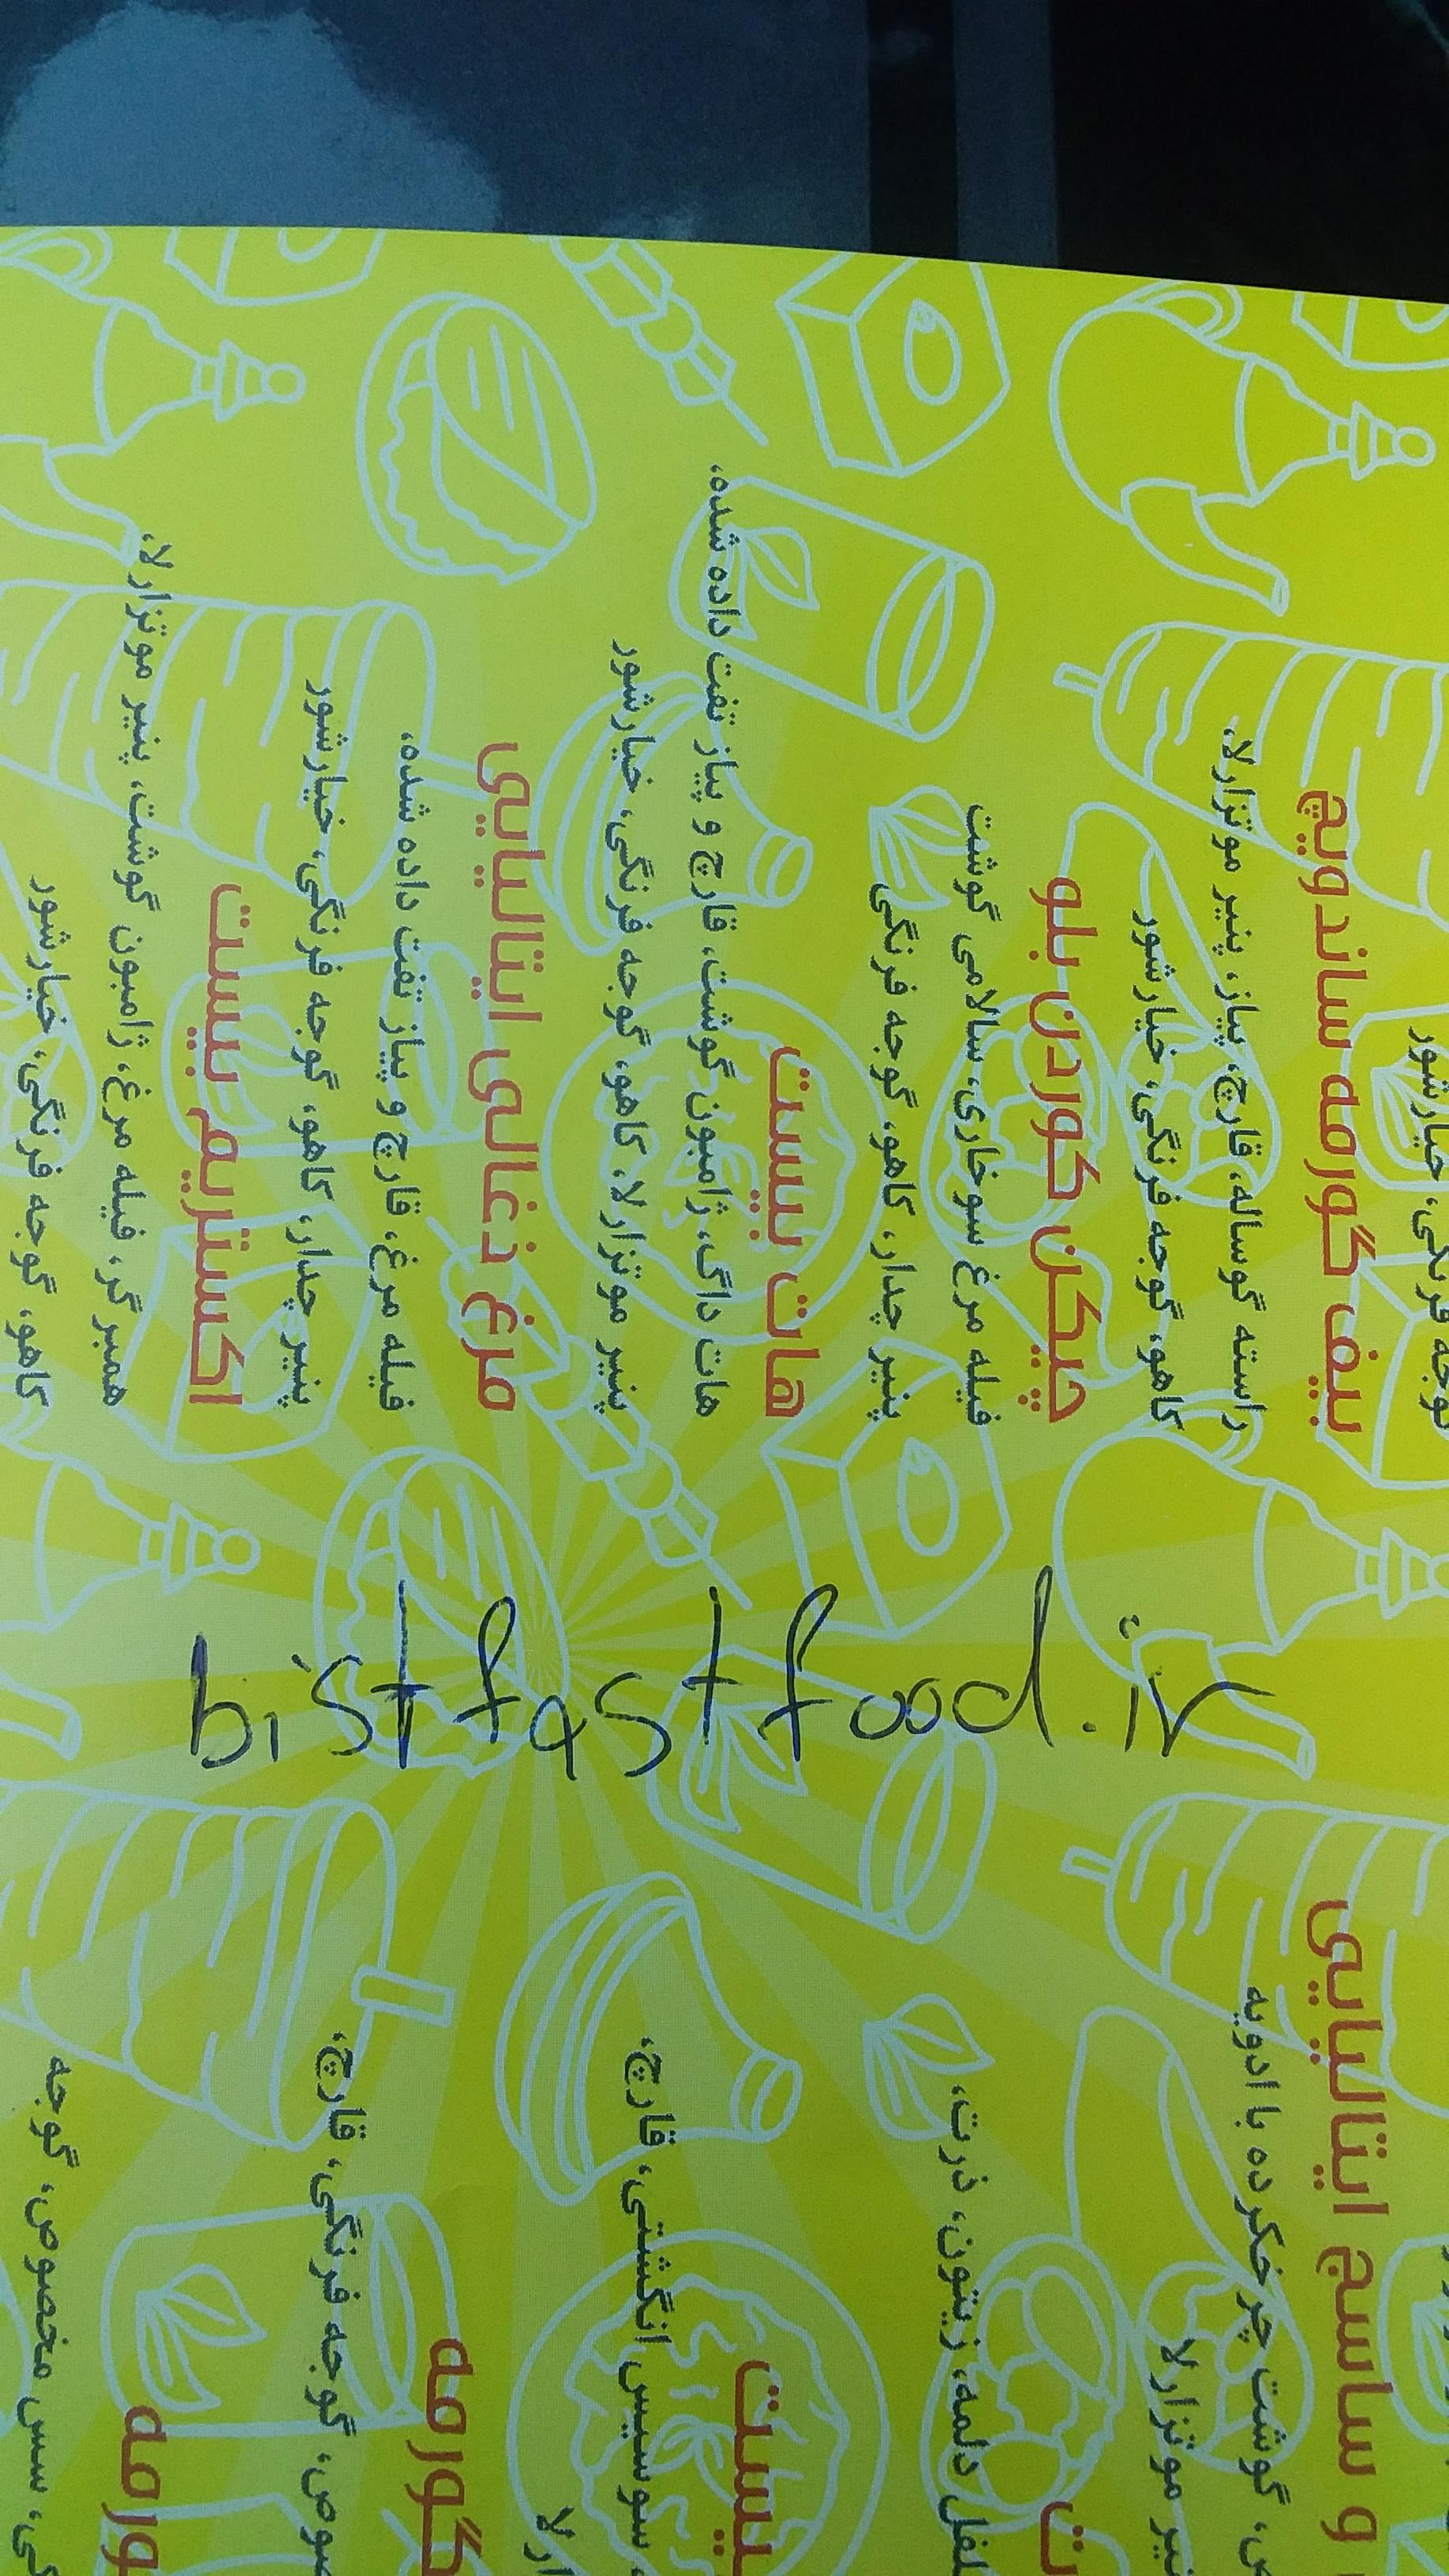 بیف گورمه ساندویچ
راسته گوساله، قارچ، پیاز، پنیر موتزارلا،
کاهو، گوجه فرنگی، خیارشور
چیکن کوردن بلو
فیله مرغ سوخاری، سالامی گوشت
پنیر چدار، کاهو، گوجه فرنگی
هات بیست
هات داگ، ژامبون گوشت، قارچ و پیاز تفت داده شده،
پنیر موتزارلا، کاهو، گوجه فرنگی، خیارشور
مرغ ذغالی ایتالیایی
فیله مرغ، قارچ و پیاز تفت داده شده،
پنیر چدار، کاهو، گوجه فرنگی، خیارشور
اکستریم بیست
همبرگر، فیله مرغ، ژامبون گوشت، پنیر موتزارلا،
کاهو، گوجه فرنگی، خیارشور
bistfastfood.ir
و ساسج ایتالیایی
گوشت چرخکرده با ادویه
موتزارلا
دلمه، زیتون، ذرت،
سوسیس انگشتی، قارچ،
گورمه
گوجه فرنگی، قارچ،
سس مخصوص، گوجه